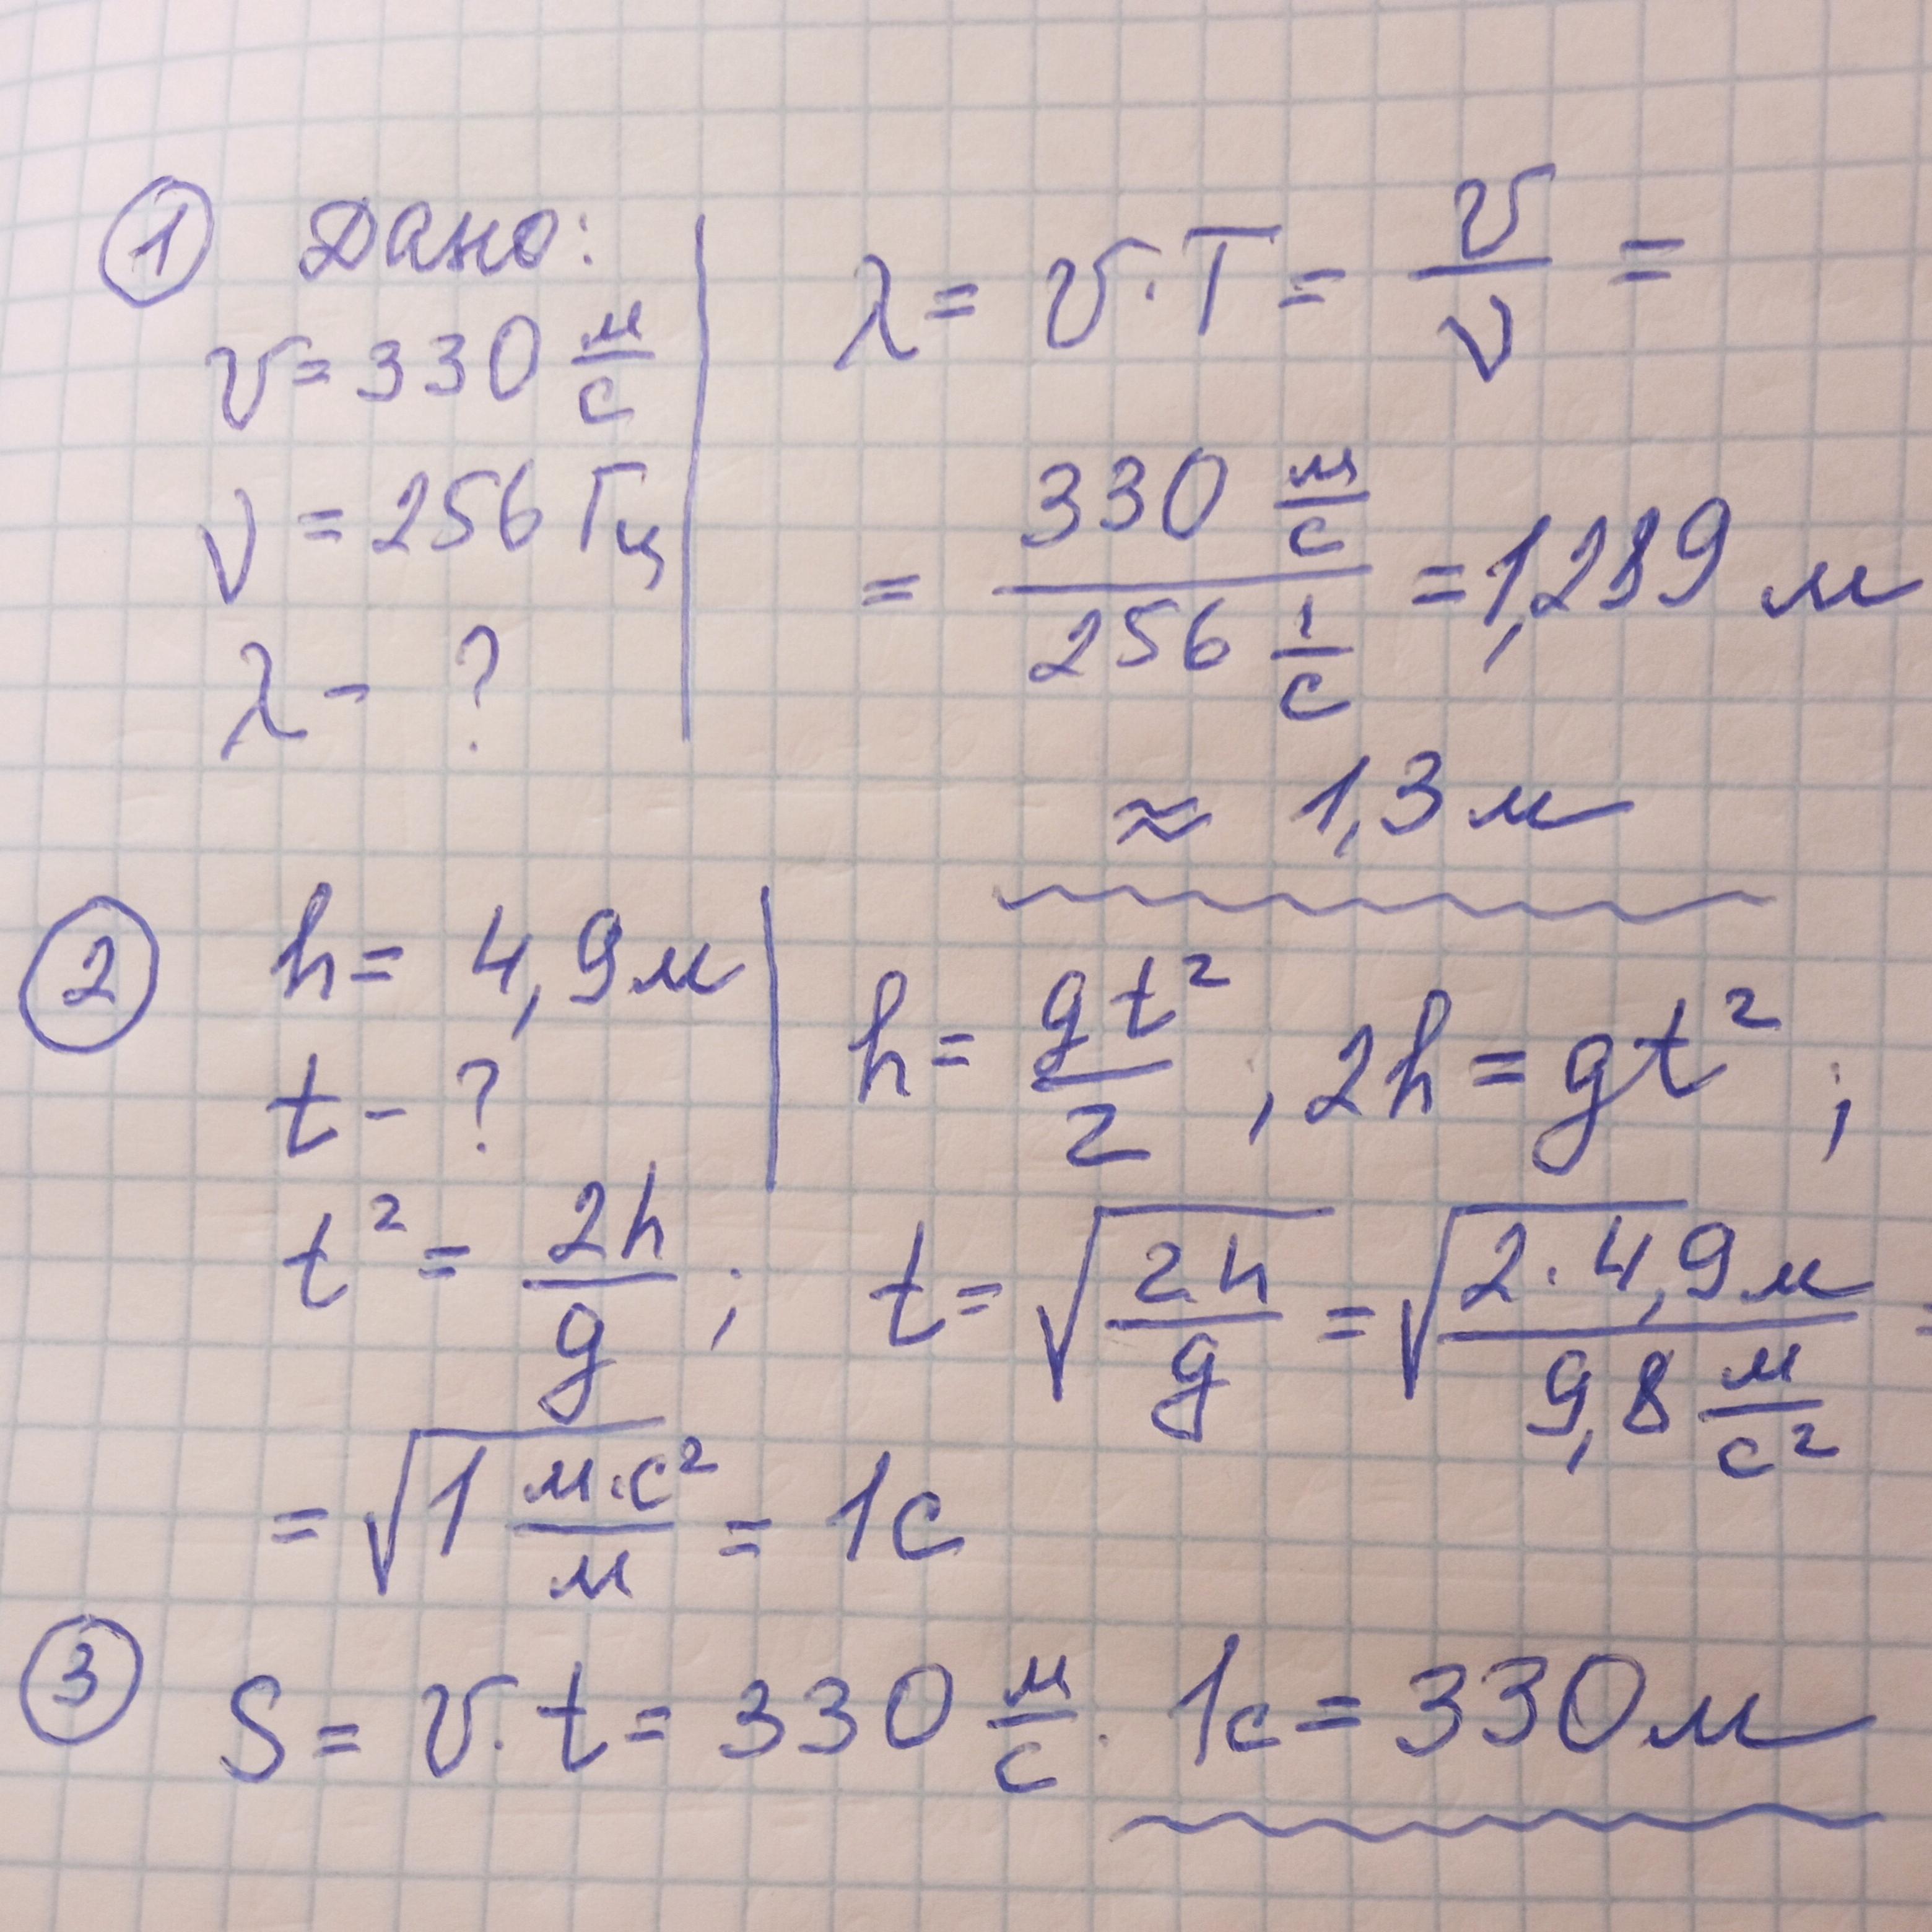 ① Дано:
v = 330 м/с
ν = 256 Гц
λ - ?
λ = v · T = v/ν =
= 330 м/с / 256 1/с = 1,289 м
≈ 1,3 м
② h = 4,9 м
t - ?
h = gt²/2 , 2h = gt² ;
t² = 2h/g ; t = √(2h/g) = √(2 · 4,9 м / 9,8 м/с²) =
= √(1 м·с²/м) = 1 с
③ S = v · t = 330 м/с · 1с = 330 м